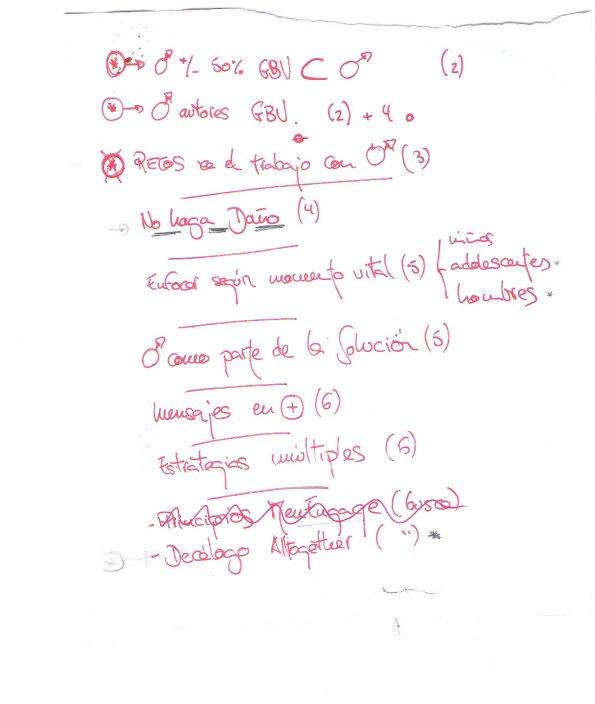 * → ♂ +/- 50% GBV ⊂ ♂ (2)
* → ♂ autores GBV. (2) + 4
* RETOS en el trabajo con ♂ (3)
→ No haga Daño (4)
Enfocar según momento vital (5) niños
addescentes.
hombres. *
♂ como parte de la Solución (5)
Mensajes en ⊕ (6)
Estrategias múltiples (6)
- Principios MenEngage (busco)
- Decálogo Altogether ( " ) *